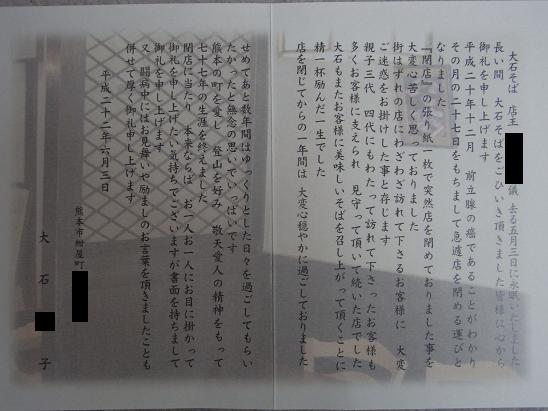 大石そば 店主 儀 去る五月三日に永眠いたしました
長い間 大石そばをご ひいき頂きました皆様に心から
御礼を申し上げます
平成二十年十二月 前立腺の癌であることがわかり
その月の二十七日をもちまして急遽店を閉める運びと
なりました
『閉店』の張り紙一枚で突然店を閉めておりました事を
大変心苦しく思っておりました
街はずれの店にわざわざ訪れて下さるお客様に 大変
ご迷惑をお掛けした事と存じます
親子三代 四代にもわたって訪れて下さったお客様も
多くお客様に支えられ 見守って頂いて続いた店でした
大石もまたお客様に美味しいそばを召し上がって頂くことに
精一杯励んだ一生でした
店を閉じてからの一年間は 大変心穏やかに過ごしておりました
せめてあと数年間はゆっくりとした日々を過ごしてもらい
たかったと無念の思いでいっぱいです
熊本の町を愛し 登山を好み 敬天愛人の精神をもって
七十七年の生涯を終えました
閉店に当たり 本来ならば お一人お一人にお目に掛かって
御礼を申し上げたい気持ちでございますが書面を持ちまして
御礼を申し上げます
又 闘病中にはお見舞いや励ましのお言葉を頂きましたことも
併せて厚く御礼申し上げます
平成二十二年六月三日
熊本市紺屋町
大石 子